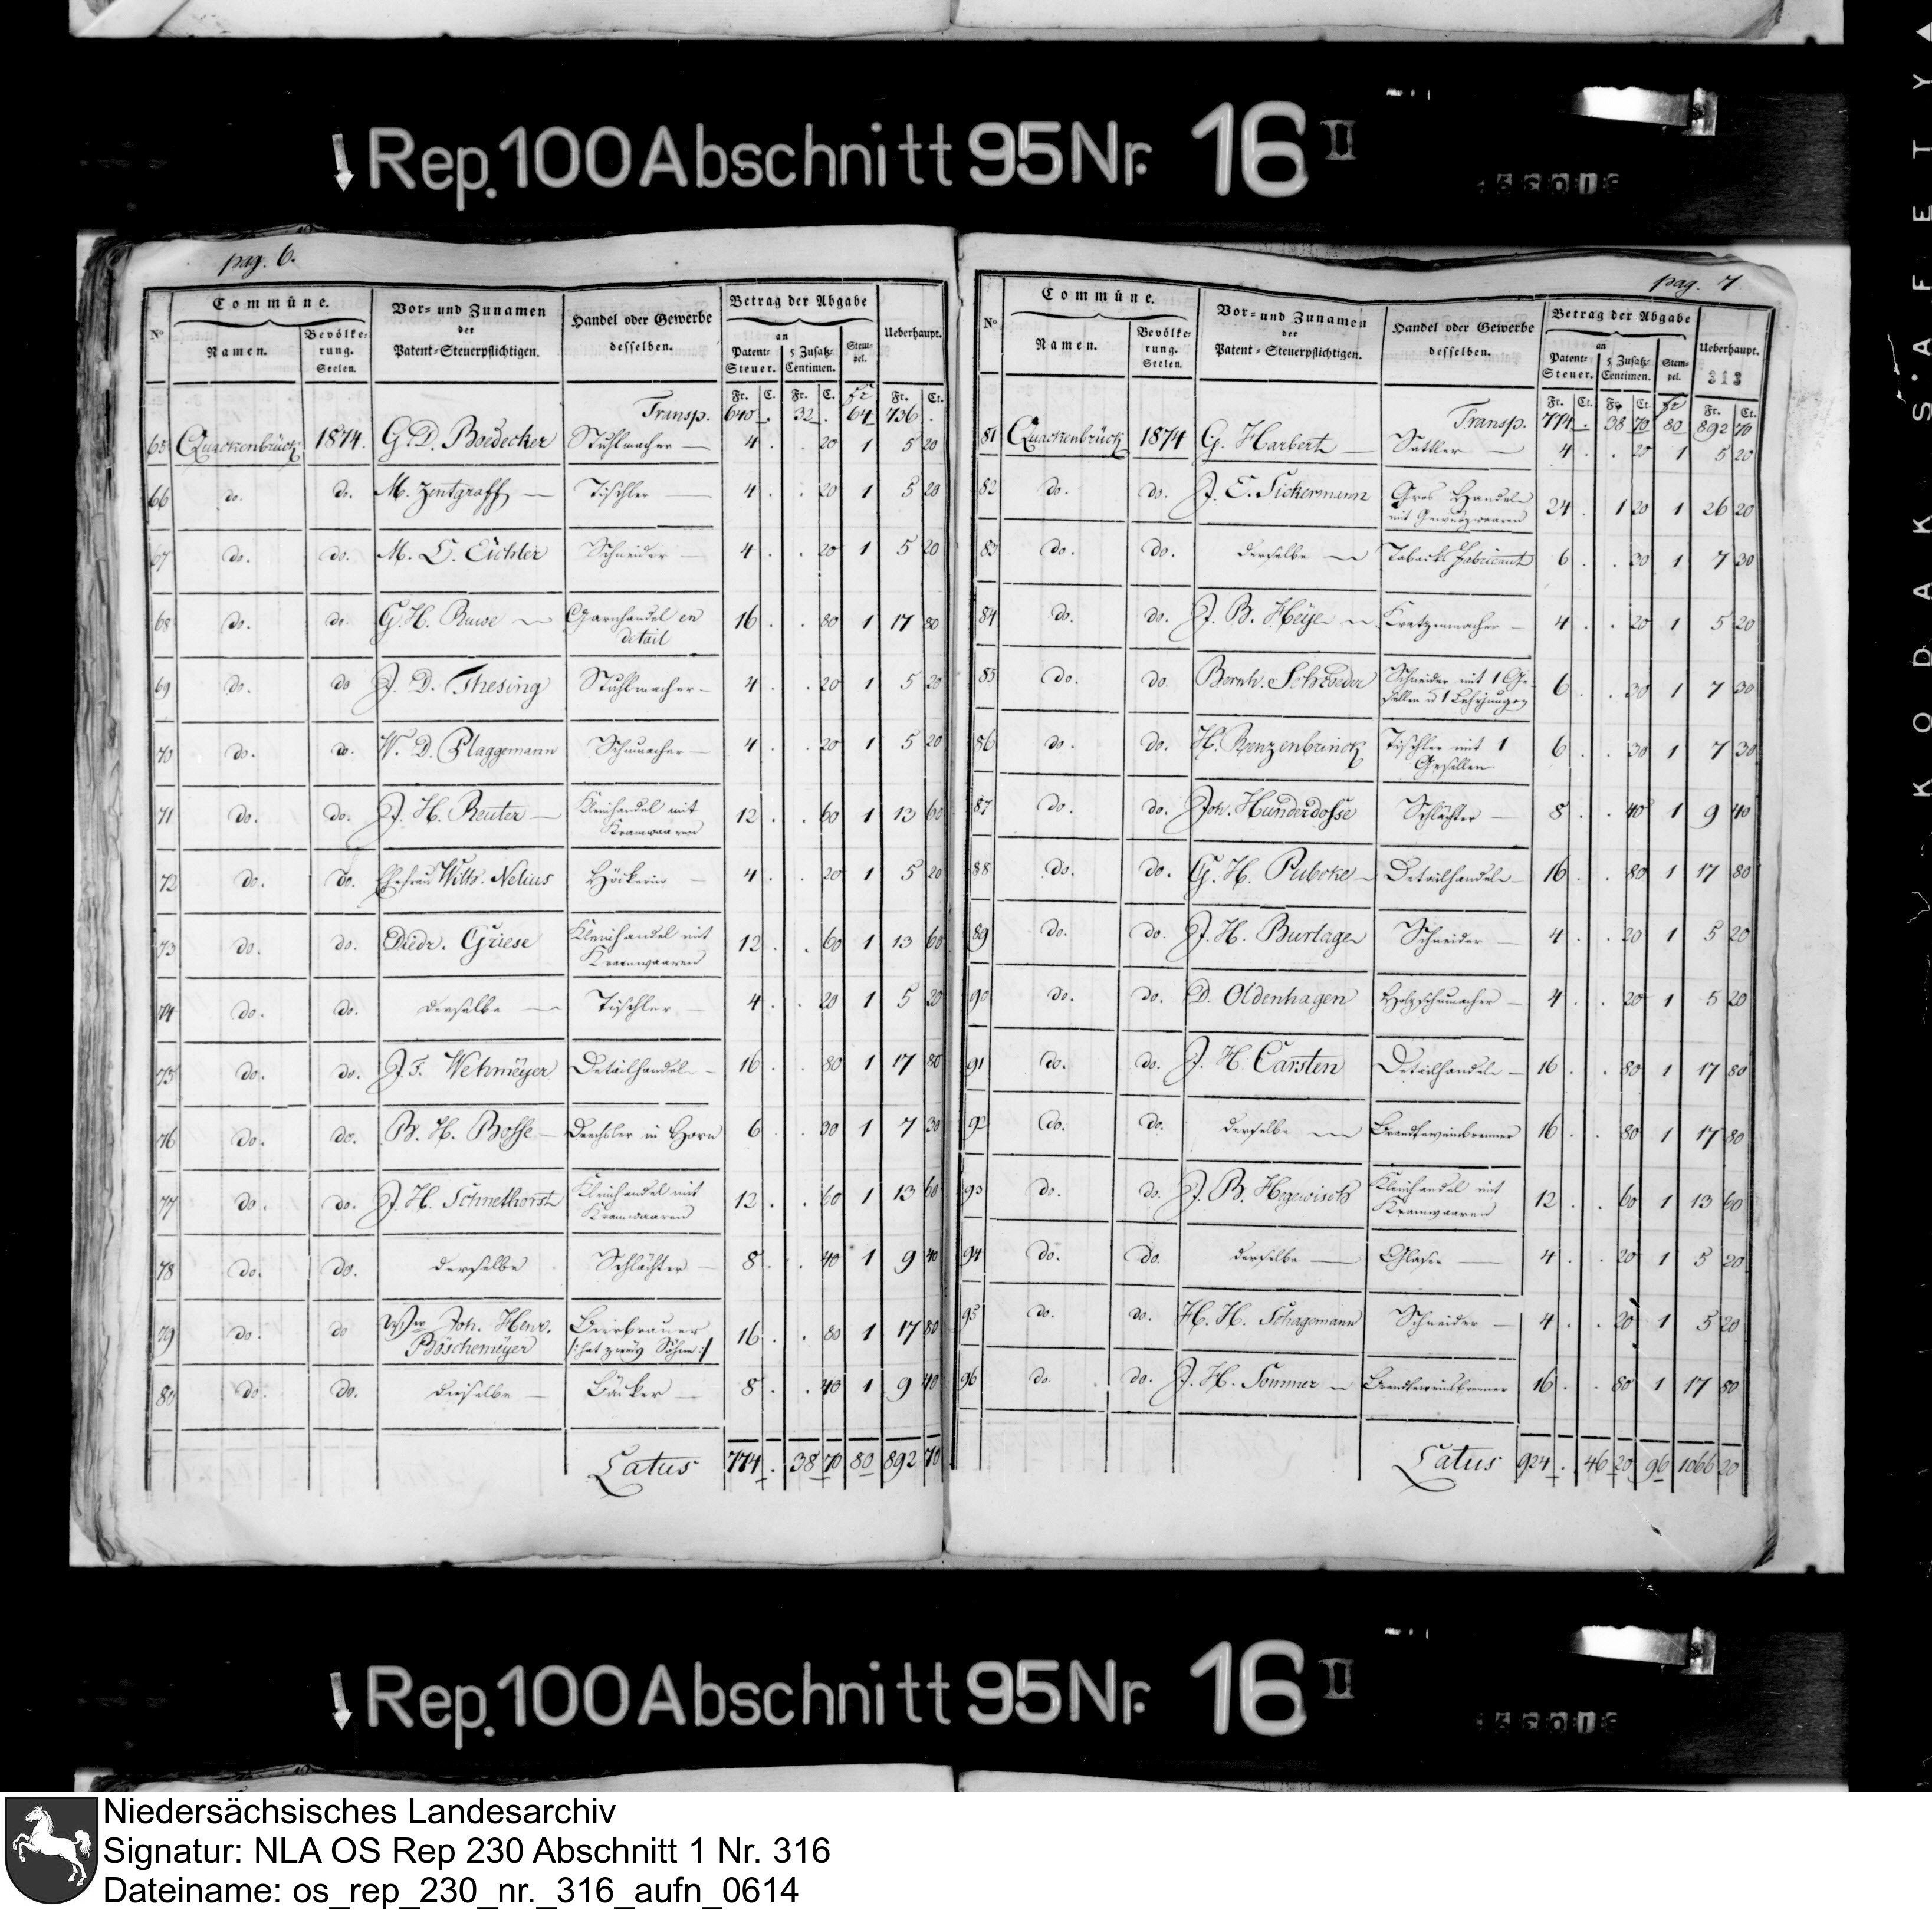 ↓ Rep. 100 Abschnitt 95 Nr. 16 II
pag. 6.
No Commüne. Vor- und Zunamen der Patent-Steuerpflichtigen. Handel oder Gewerbe desselben. Betrag der Abgabe Ueberhaupt.
Namen. Bevölkerung. Seelen. an Patent-Steuer. 5 Zusatz-Centimen. Stempel.
Fr. C. Fr. C. Fr Fr. Ct.
Transp. 640 . 32 . 64 736 .
65 Quackenbrück 1874. G. D. Boedecker Stuhlmacher 4 . . 20 1 5 20
66 do. do. M. Zentgraff Tischler 4 . . 20 1 5 20
67 do. do. M. C. Eichler Schneider 4 . . 20 1 5 20
68 do. do. G. H. Ruwe Garnhandel en detail 16 . . 80 1 17 80
69 do. do J. D. Thesing Stuhlmacher 4 . . 20 1 5 20
70 do. do. W. D. Plaggemann Schumacher 4 . . 20 1 5 20
71 do. do. J. H. Reuter Kleinhandel mit Kramwaaren 12 . . 60 1 13 60
72 do. do. Ehefrau Wilh. Nelius Höckerin 4 . . 20 1 5 20
73 do. do. Diedr. Griese Kleinhandel mit Kramwaaren 12 . . 60 1 13 60
74 do. do. derselbe Tischler 4 . . 20 1 5 20
75 do. do. J. F. Wehmeyer Detailhandel 16 . . 80 1 17 80
76 do. do. B. H. Bosse Drechsler in Horn 6 . . 30 1 7 30
77 do. do. J. H. Schmethorst Kleinhandel mit Kramwaaren 12 . . 60 1 13 60
78 do. do. derselbe Schlächter 8 . . 40 1 9 40
79 do. do Joh. Henr. Böschemeyer Bierbrauer /: hat zwey Söhne :/ 16 . . 80 1 17 80
80 do. do. dieselbe Bäcker 8 . . 40 1 9 40
Latus 774 . 38 70 80 892 70
pag. 7
No Commüne. Vor- und Zunamen der Patent-Steuerpflichtigen. Handel oder Gewerbe desselben. Betrag der Abgabe Ueberhaupt.
Namen. Bevölkerung. Seelen. an Patent-Steuer. 5 Zusatz-Centimen. Stempel. 313
Fr. Ct. Fr. Ct. Fr Fr. Ct.
Transp. 774 . 38 70 80 892 70
81 Quackenbrück 1874 G. Harbert Sattler 4 . . 20 1 5 20
82 do. do. J. C. Sickermann Gros Handel mit Gewürzwaaren 24 . 1 20 1 26 20
83 do. do. derselbe Tabacks Fabricant 6 . . 30 1 7 30
84 do. do. J. B. Heye Kratzenmacher 4 . . 20 1 5 20
85 do. do. Bernh. Schroeder Schneider mit 1 Gesellen u 1 Lehrjungen 6 . . 30 1 7 30
86 do. do. H. Renzenbrinck Tischler mit 1 Gesellen 6 . . 30 1 7 30
87 do. do. Joh. Hunderdosse Schlächter 8 . . 40 1 9 40
88 do. do. G. H. Pubcke Detailhandel 16 . . 80 1 17 80
89 do. do. J. H. Burlage Schneider 4 . . 20 1 5 20
90 do. do. D. Oldenhagen Holzschumacher 4 . . 20 1 5 20
91 do. do. J. H. Carsten Detailhandel 16 . . 80 1 17 80
92 do. do. derselbe Brandteweinbrenner 16 . . 80 1 17 80
93 do. do. J. B. Hegewisch Kleinhandel mit Kramwaaren 12 . . 60 1 13 60
94 do. do. derselbe Glaser 4 . . 20 1 5 20
95 do. do. H. H. Schagemann Schneider 4 . . 20 1 5 20
96 do. do. J. H. Sommer Brandteweinbrenner 16 . . 80 1 17 80
Latus 924 . 46 20 96 1066 20
↓ Rep. 100 Abschnitt 95 Nr. 16 II
KODAK SAFETY
Niedersächsisches Landesarchiv
Signatur: NLA OS Rep 230 Abschnitt 1 Nr. 316
Dateiname: os_rep_230_nr._316_aufn_0614